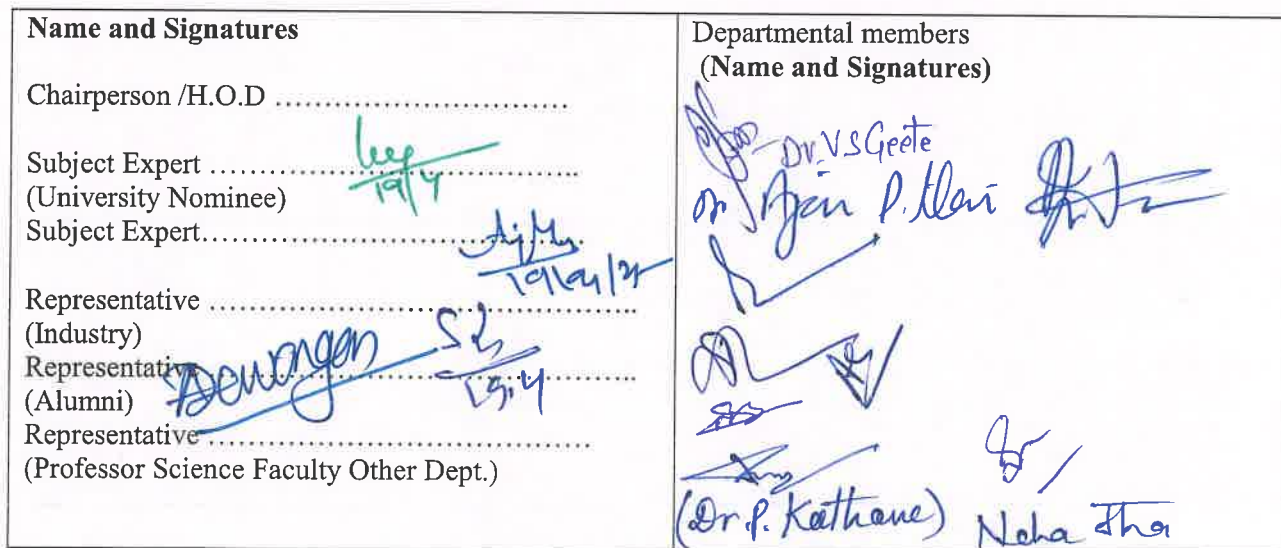 Name and Signatures
Chairperson /H.O.D ..............................
Subject Expert ......................................
19/4
(University Nominee)
Subject Expert.......................................
Representative ............................................
(Industry)
Dewangan
19.4
Representative ............................................
(Alumni)
Representative .......................................
(Professor Science Faculty Other Dept.)
Departmental members
(Name and Signatures)
Dr. V S Geete
(Dr. P. Kathane)
Neha Jha